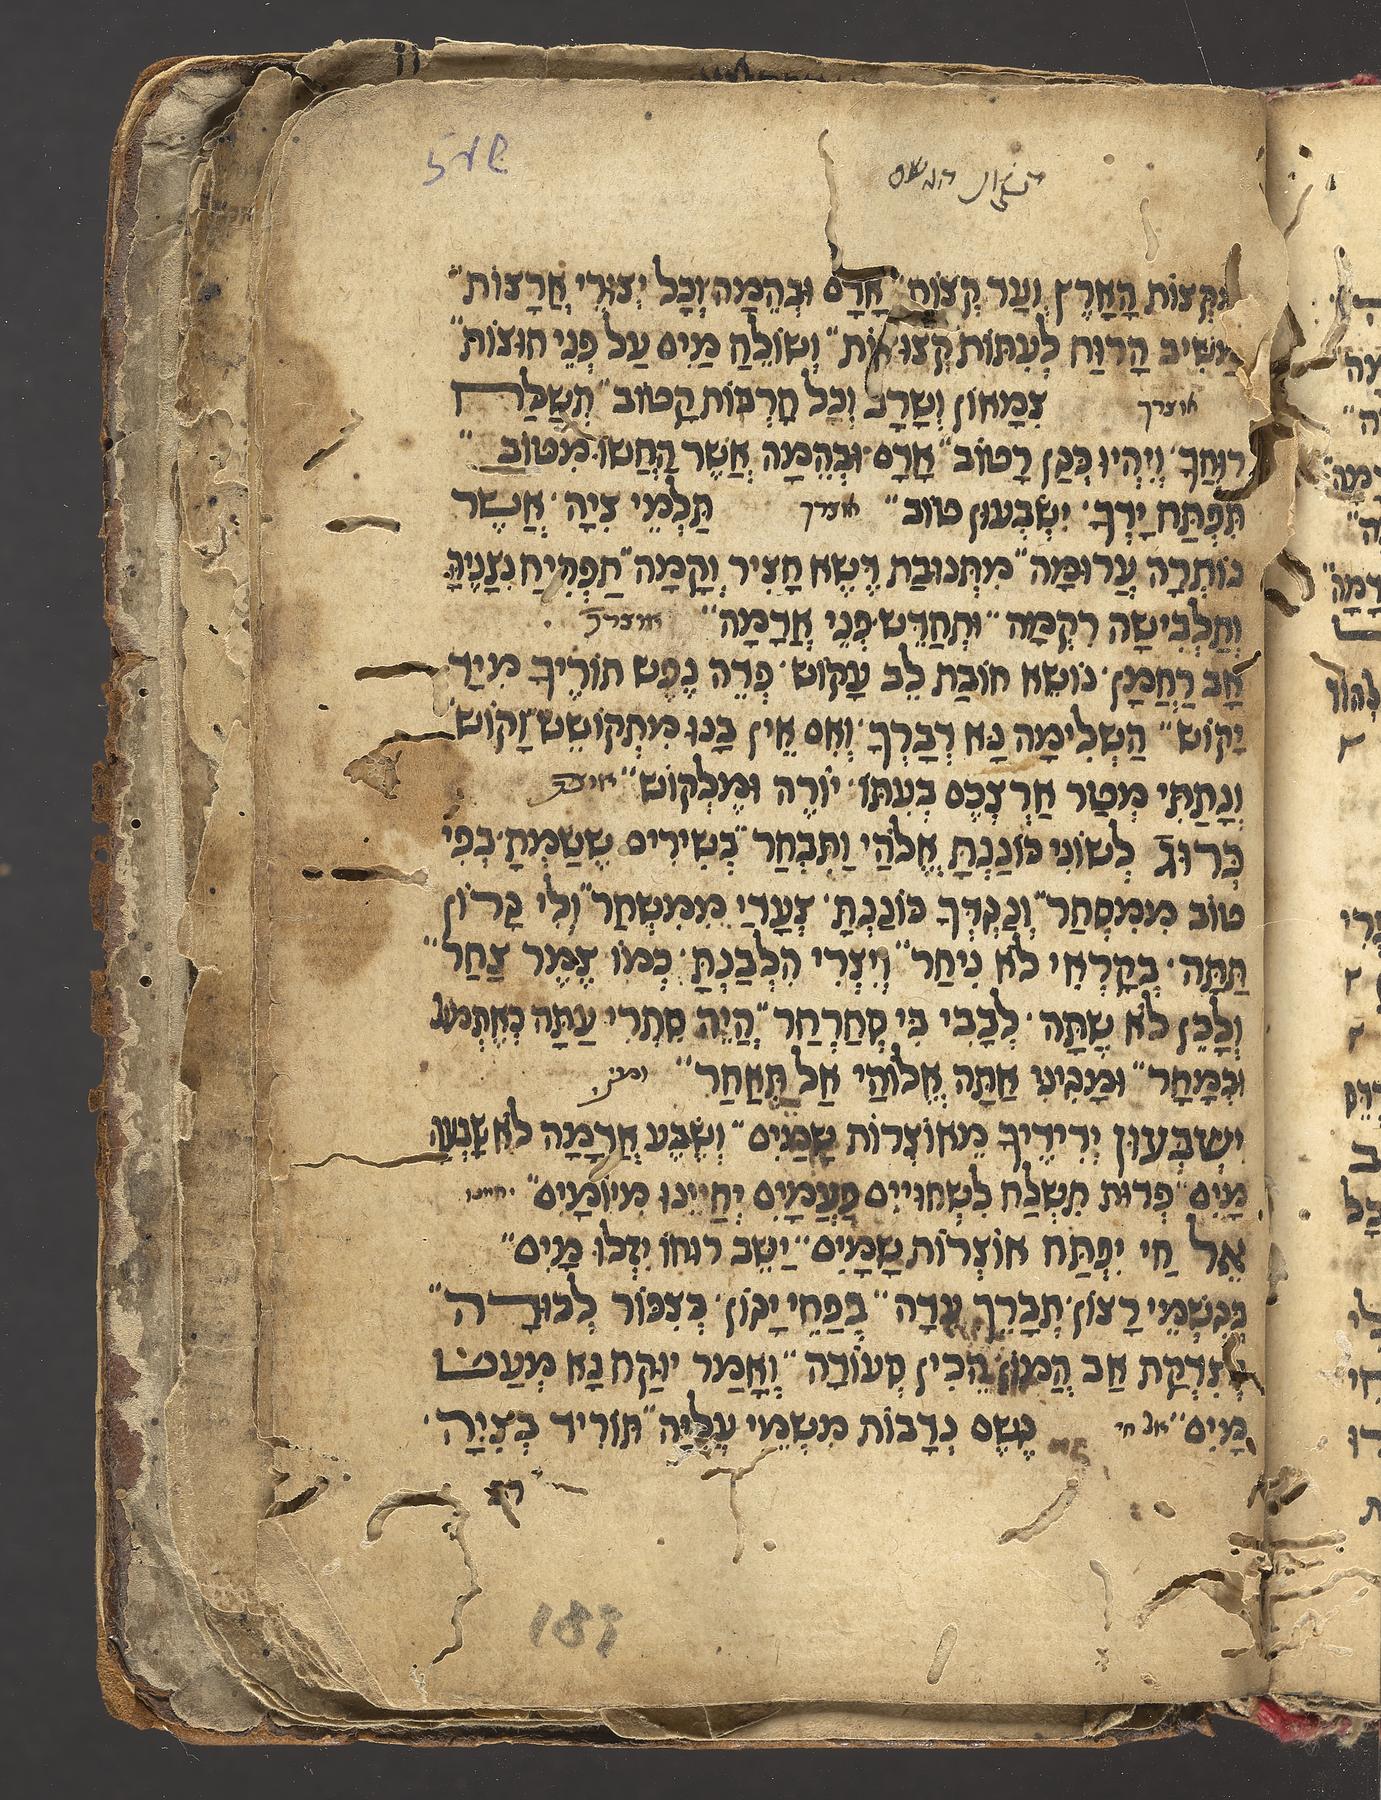 תשז
תיקון הגשם
מִקְצוֹת הָאָרֶץ וְעַד קְצוֹת״ אָדָם וּבְהֵמָה וְכָל יְצוּרֵי אֲרָצוֹת״
מַשִּׁיב הָרוּחַ לְעִתּוֹת קְצוּאוֹת״ וְשׁוֹלֵחַ מַיִם עַל פְּנֵי חוּצוֹת״
אוצרך צִמָּאוֹן וְשָׁרָב וְכָל חָרְבוֹת קָטוֹב״ תְּשַׁלַּח
רוּחֲךָ׳ וְיִהְיוּ כְּגַן רָטוֹב״ אָדָם וּבְהֵמָה אֲשֶׁר הֶחֱשׁוּ מִטּוֹב״
תִּפְתַּח יָדְךָ׳ יִשְׂבְּעוּן טוֹב״ אוצרך תַּלְמֵי צִיָּה׳ אֲשֶׁר
נוֹתְרָה עֲרוּמָּה״ מִתְּנוּבַת דֶּשֶׁא חָצִיר וְקָמָה״ תַּפְרִיחַ נִצָּנֶיהָ
וְתַלְבִּישָׁהּ רִקְמָה״ וּתְחַדֵּשׁ פְּנֵי אֲדָמָה״ אוצרך
אָב רַחֲמָן׳ נוֹשֵׂא חוֹבַת לֵב עָקוֹשׁ׳ פְּדֵה נֶפֶשׁ תּוֹרֶיךָ מִיַּד
יָקוֹשׁ״ הַשְׁלִימָה נָּא דְבָרְךָ׳ וְאִם אֵין בָּנוּ מִתְקוֹשֵׁשׁ וָקוֹשׁ
וְנָתַתִּי מְטַר אַרְצְכֶם בְּעִתּוֹ׳ יוֹרֶה וּמַלְקוֹשׁ״ אוצרך
לְשׁוֹנִי כּוֹנַנְתָּ אֱלֹהַי וַתִּבְחַר״ בְּשִׁירִים שֶׁשַּׂמְתָּ׳ בְּפִי
טוֹב מִמִּסְחָר״ וְנֶגְדְּךָ כּוֹנַנְתָּ׳ צְעָדַי מִמִּשְׁחָר״ וְלִי גָרוֹן
תַּתָּה׳ בְּקָרְאִי לֹא נִיחַר״ וְיִצְרִי הִלְבַּנְתָּ׳ כְּמוֹ צֶמֶר צַחַר״
וְלָכֵן לֹא שַׁתָּה׳ לְבָבִי בִּי סְחַרְחַר״ הֱיֵה סִתְרִי עַתָּה כְּאֶתְמוֹל
וּכְמָחָר״ וּמָגִינִּי אַתָּה אֱלוֹהַי אַל תְּאַחַר״
יִשְׂבְּעוּן יְדִידֶיךָ מֵאוֹצְרוֹת שָׁמַיִם״ וְשֶׂבַע אֲדָמָה לֹא שָׂבְעָה
מַּיִם״ פְּדוּת תִּשְׁלַח לִשְׁחוּיִים פַּעֲמָיִם יְחַיֵּינוּ מִיּוֹמָיִם״ יחיינו
אֵל חַי יִפְתַּח אוֹצְרוֹת שָׁמַיִם״ יַשֵּׁב רוּחוֹ יִזְּלוּ מָיִם״
בְּגִשְׁמֵי רָצוֹן׳ תְּבָרֵךְ עֵדָה״ בְּפַחֵי יָגוֹן׳ כְּצִפּוֹר לְכוּדָה״
וְצִדְקַת אַב הֲמוֹן הֵכִין סְעוּדָה״ וְאָמַר יוּקַּח נָא מְעַט
מַּיִם״ אל חי גֶּשֶׁם נְדָבוֹת מִשְּׁמֵי עֲלִיָּה״ תּוֹרִיד בְּצִיָּה׳
187